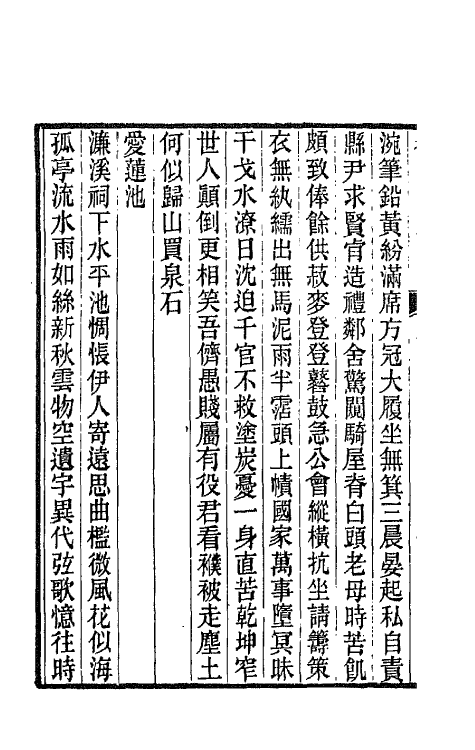 涴筆鉛黃紛滿席方冠大履坐無箕三晨晏起私自責
縣尹求賢肯造禮鄰舍驚闚騎屋脊白頭老母時苦飢
頗致俸餘供菽麥登登鼛鼓急公會縱橫抗坐請籌策
衣無紈繻出無馬泥雨半霑頭上幘國家萬事墮冥昧
干戈水潦日沈迫千官不救塗炭憂一身直苦乾坤窄
世人顛倒更相笑吾儕愚賤屬有役君看襆被走塵土
何似歸山買泉石
愛蓮池
濂溪祠下水平池惆悵伊人寄遠思曲檻微風花似海
孤亭流水雨如絲新秋雲物空遺宇異代弦歌憶往時